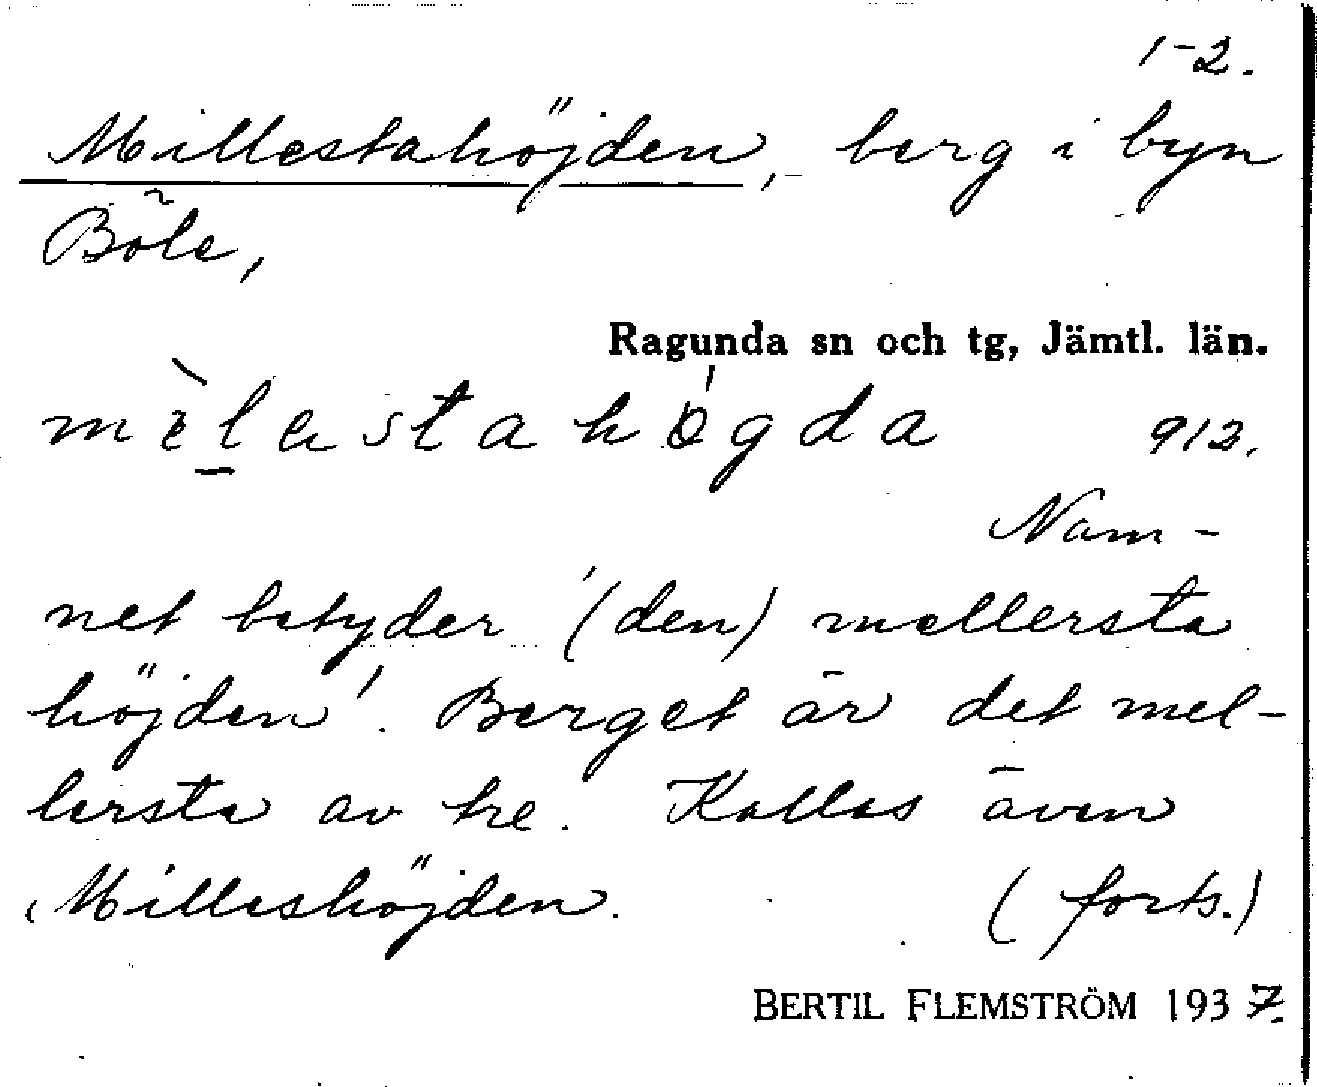 1-2.
Millestahöjden, berg i byn
Böle,
Ragunda sn och tg, Jämtl. län.
912.
Nam-
net betyder '(den) mellersta
höjden'. Berget är det mel-
lersta av tre. Kallas även
Milleshöjden. (forts.)
BERTIL FLEMSTRÖM 1937.